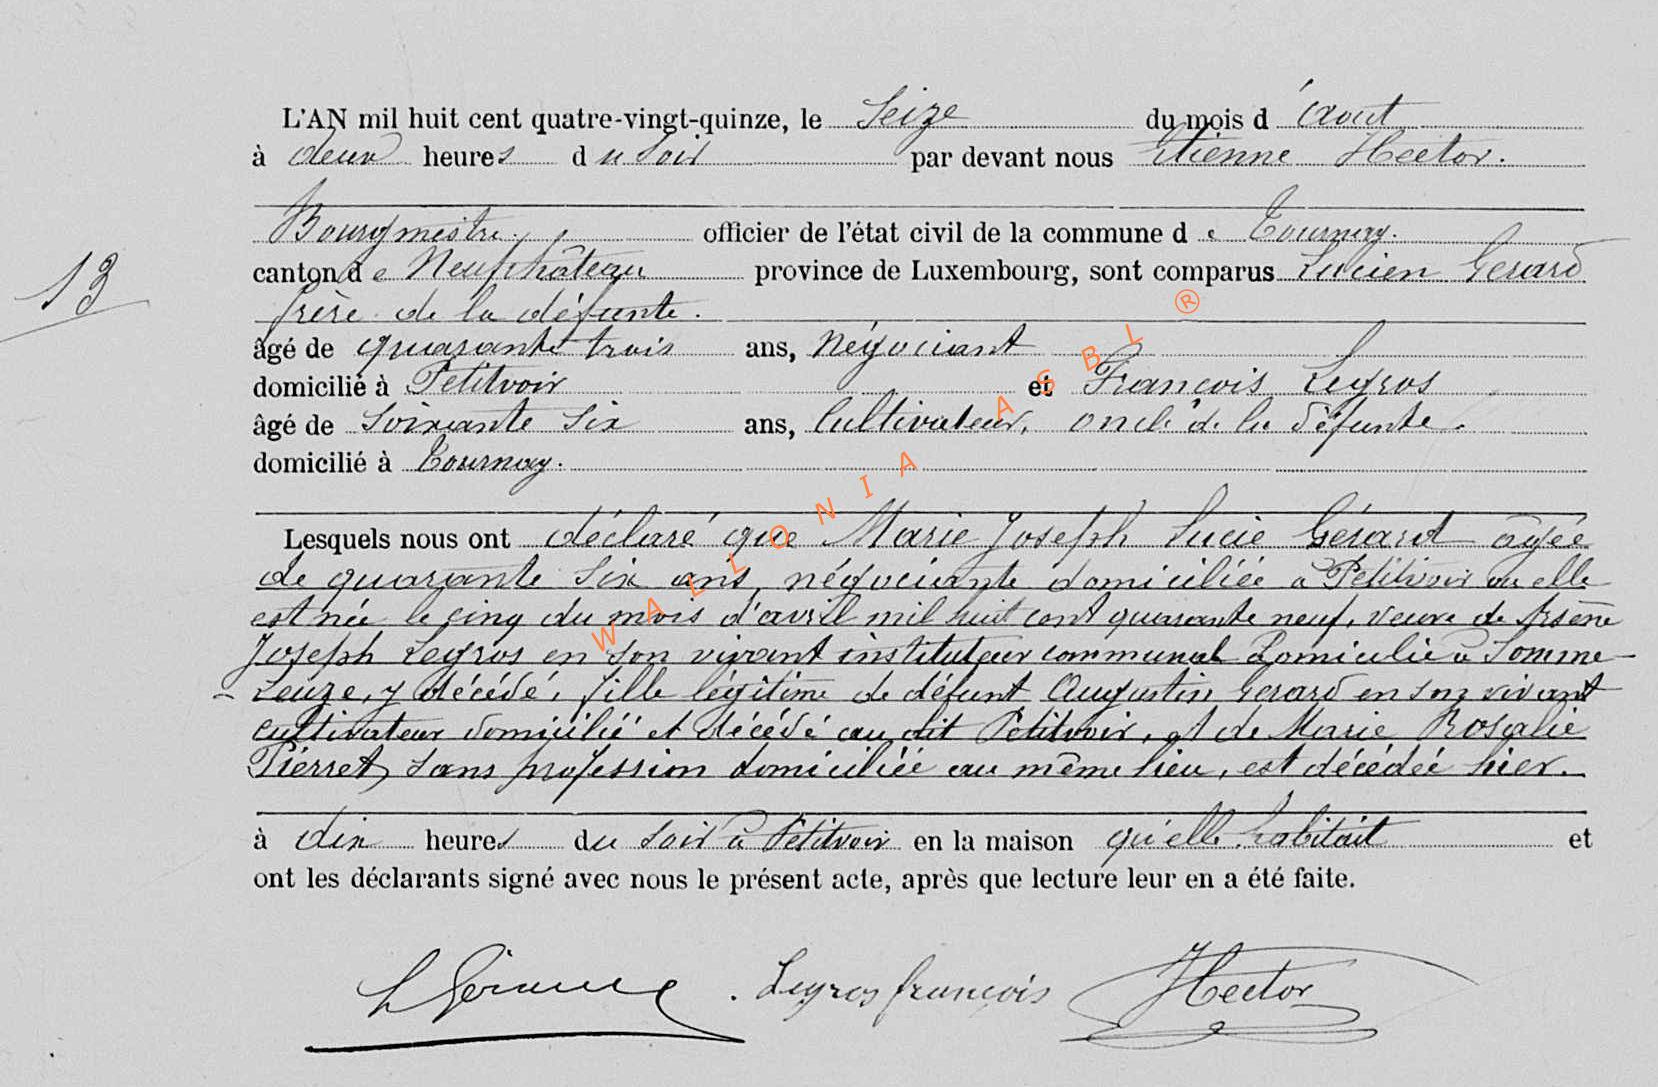 L'AN mil huit cent quatre-vingt-quinze, le Seize du mois d'Aout
à deux heures du Soir par devant nous Etienne Hector.
Bourgmestre. officier de l'état civil de la commune de Tournay.
canton de Neufchâteau province de Luxembourg, sont comparus Lucien Gerard
frère de la défunte.
13
âgé de quarante trois ans, Négociant
domicilié à Petitvoir et François Legros
âgé de soixante six ans, Cultivateur, oncle de la défunte.
domicilié à Tournay.
Lesquels nous ont déclaré que Marie Joseph Lucie Gérard agée
de quarante six ans, négociante domiciliée à Petitvoir ou elle
est née le cinq du mois d'avril mil huit cent quarante neuf, veuve de Arsène
Joseph Legros en son vivant instituteur communal Domicilié à Somme-
Leuze, y décédé, fille légitime de défunt Augustin Gerard en son vivant
cultivateur domicilié et décédé au dit Petitvoir, et de Marie Rosalie
Pierret, sans profession domiciliée au même lieu, est décédée hier.
à dix heures du soir à Petitvoir en la maison qu'elle habitait et
ont les déclarants signé avec nous le présent acte, après que lecture leur en a été faite.
L Gérard. Legros françois Hector
WALLONIA ASBL ®